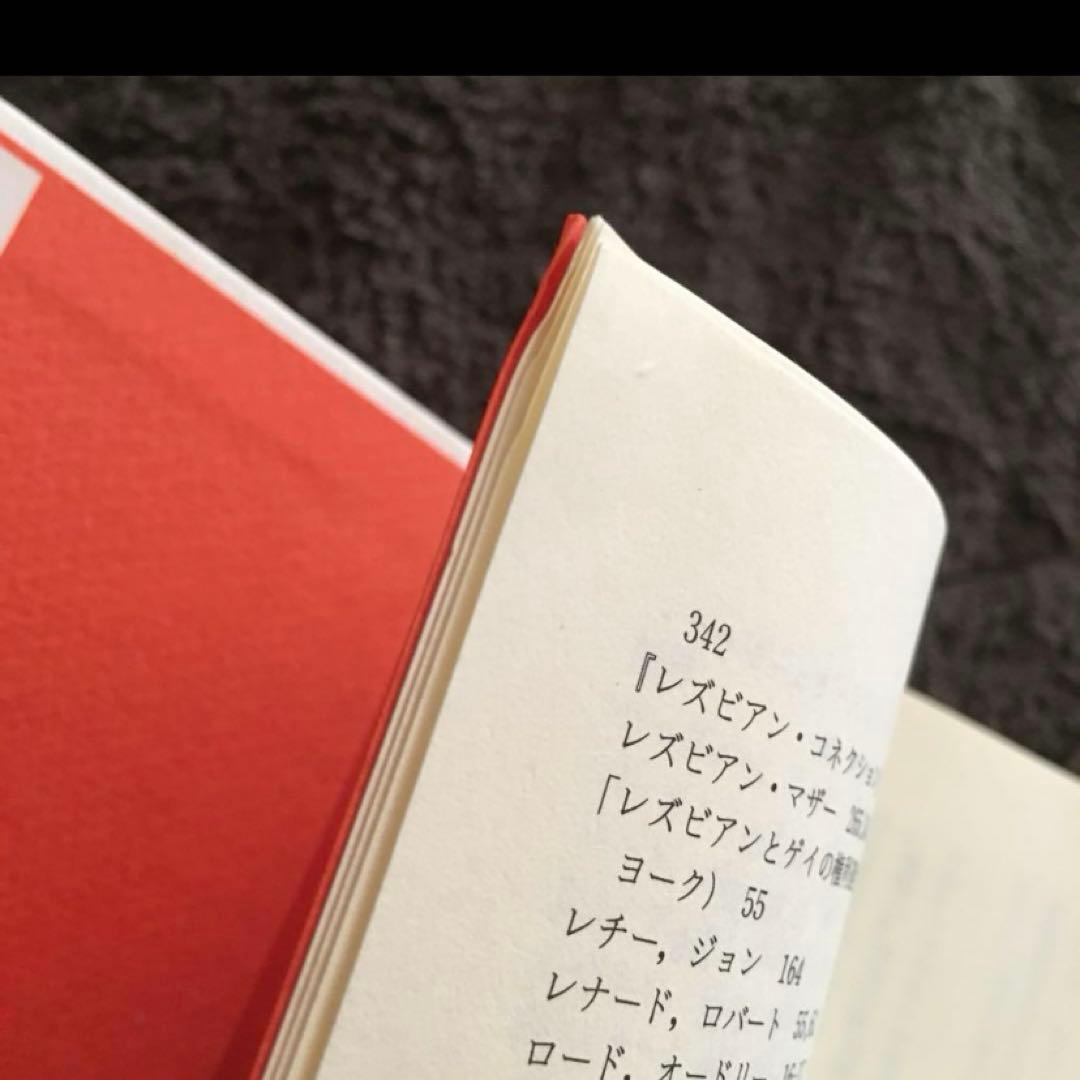 342
『レズビアン・コネクション
レズビアン・マザー
「レズビアンとゲイの権利
ヨーク) 55
レチー, ジョン 164
レナード, ロバート 55,
ロード, オードリー